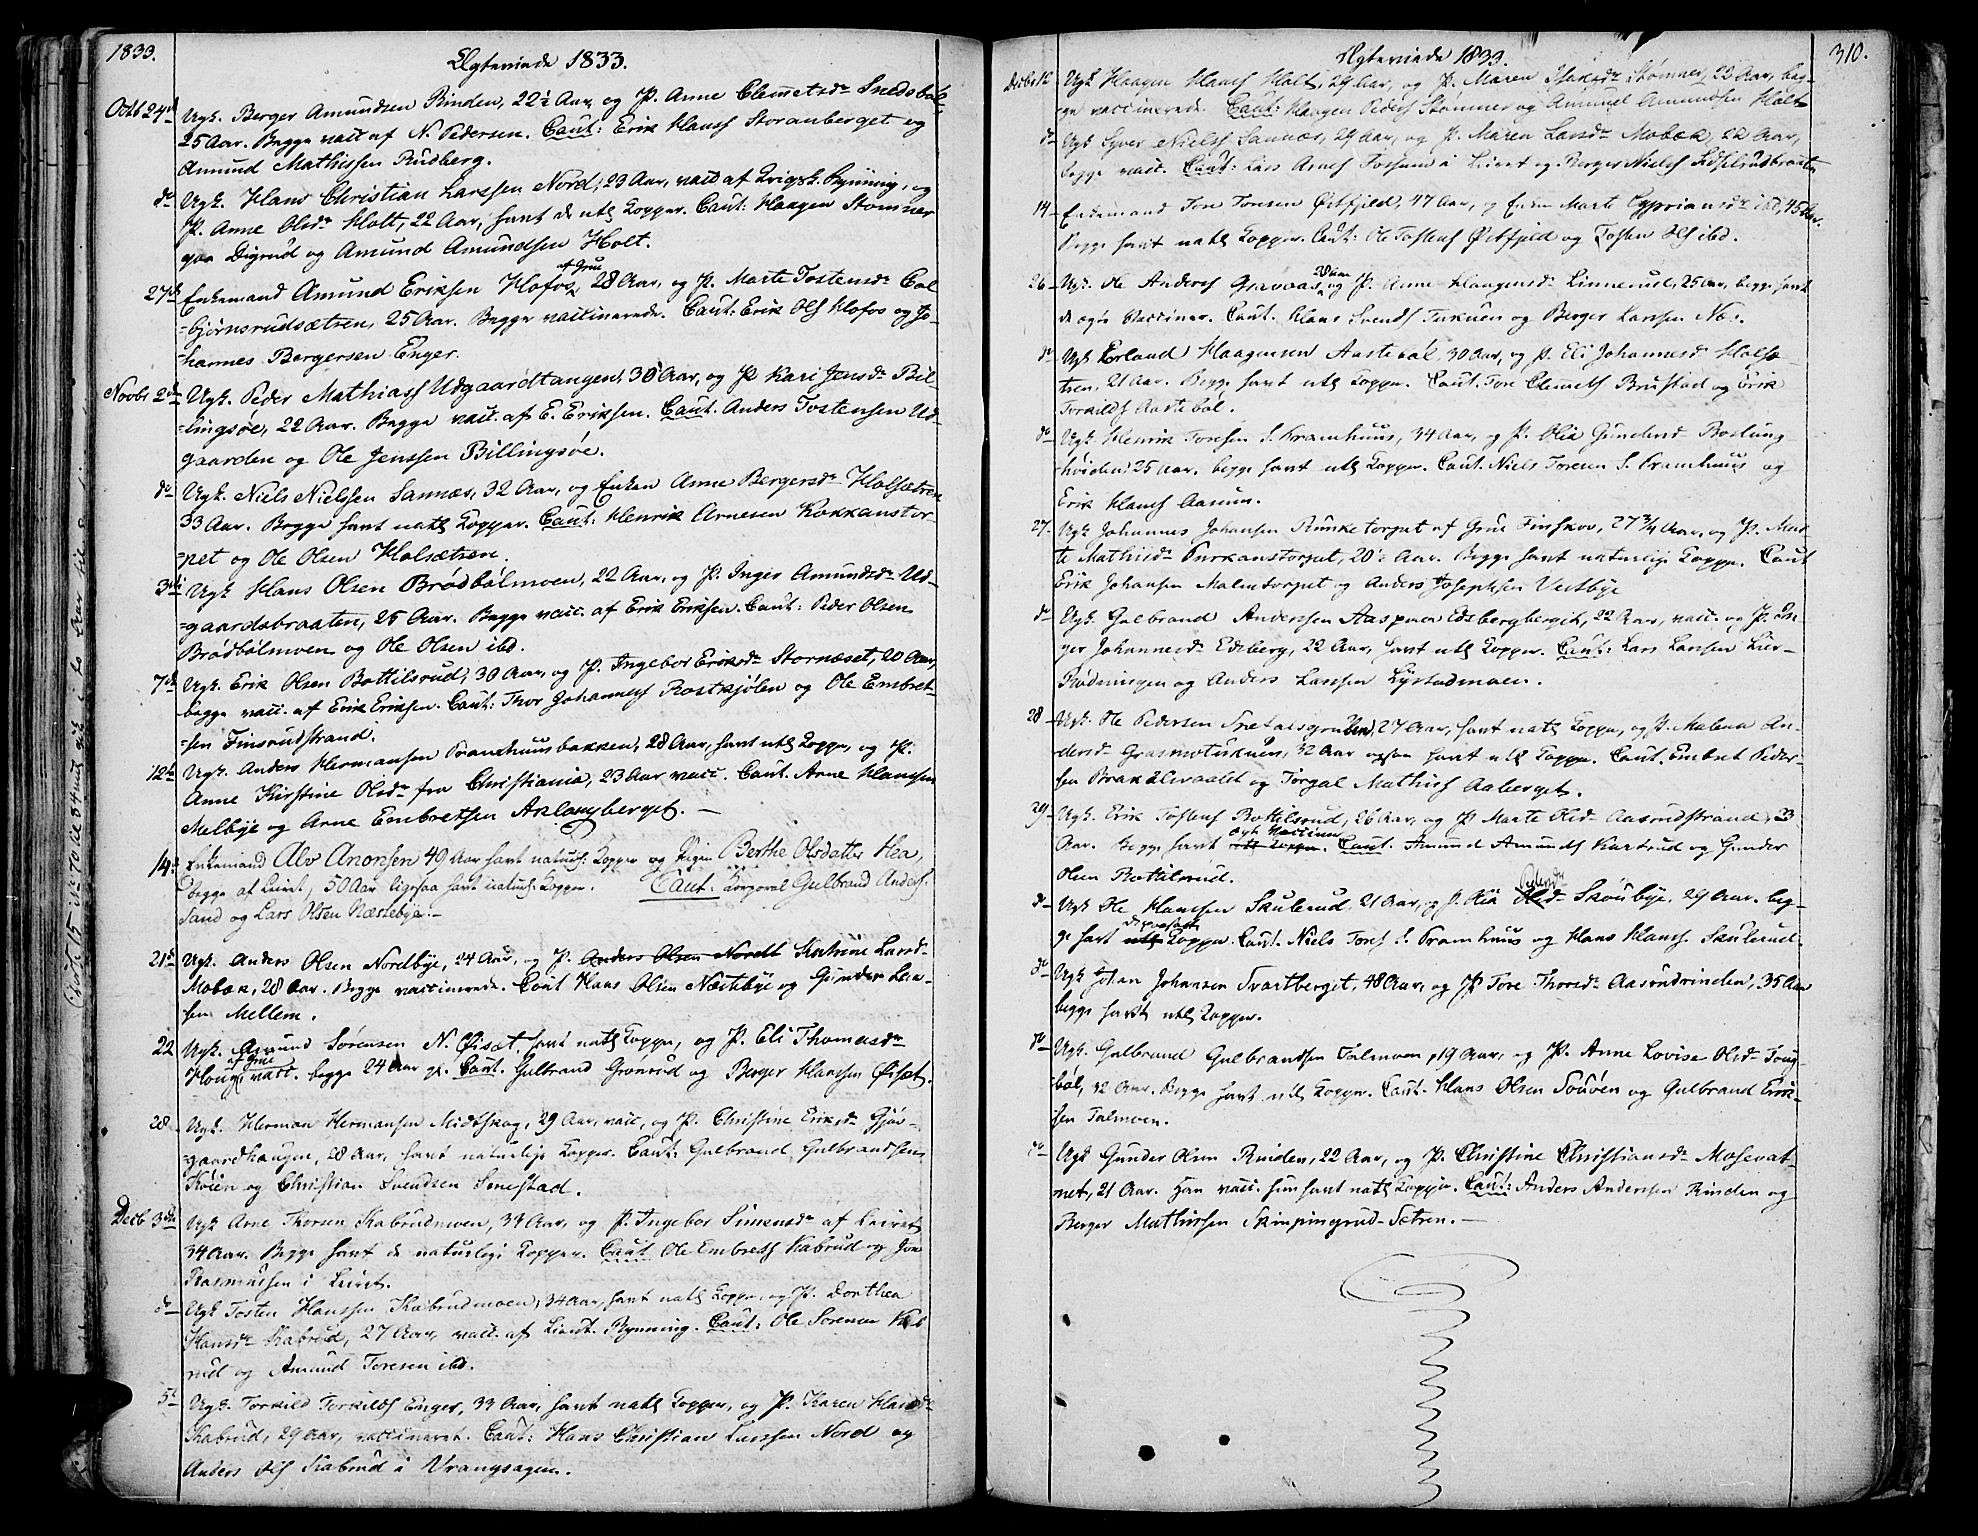 1833.
Ægteviede 1833.
Octb 24de Ugk. Berger Amundsen Rinden, 22½ Aar, og P. Anne Clemetsdr Snedsböl
25 Aar. Begge vacc af N. Pedersen. Caut: Erik Hanss Storanberget og
Amund Mathissen Rudberg.
do Ugk. Hans Christian Larssen Nord, 23 Aar, vacc af Krigsk. Rynning, og
P. Anne Olsdr Holt, 22 Aar, havt de ntl Kopper. Caut: Haagen Stømner
paa Digrud og Amund Amundsen Holt.
af Grue
27de Enkemand Amund Eriksen Hofos, 28 Aar, og P. Marte Tostensdr Col
=bjørnsrudsætren, 25 Aar. Begge vaccinerede. Caut: Erik Olss Hofos og Jo-
=hannes Bergersen Enger.
Novbr 2den Ugk. Peder Mathiass Udgaardtangen, 30 Aar, og P. Kari Jensdr Bil-
=lingsöe, 22 Aar. Begge vacc. af E. Eriksen. Caut. Anders Tostensen Ud-
gaarden og Ole Jenssen Billingsöe.
do Ugk. Niels Nielssen Sannæs, 32 Aar, og Enken Anne Bergersdr Holsætren
33 Aar. Begge havt natl Kopper. Caut: Henrik Arnesen Kokkanstor-
=pet og Ole Olsen Holsætren.
3die Ugk. Hans Olsen Brödbölmoen, 22 Aar, og P. Inger Amundsdr Ud-
=gaardsbraaten, 25 Aar. Begge vacc. af Erik Eriksen. Caut: Peder Olsen
Brödbölmoen og Ole Olsen ibd.
7de Ugk. Erik Olsen Bottilsrud, 30 Aar, og P. Ingebor Eriksdr Stornæset, 20 Aar,
begge vacc. af Erik Eriksen. Caut: Thor Johanness Rostkjölen og Ole Embret-
=sen Finsrudstrand.
12te Ugk. Anders Hermansen Pramhuusbakken, 28 Aar, havt ntl Kopper, og P.
Anne Kirstine Olsdr fra Christiania, 23 Aar vacc. Caut. Arne Hanssen
Melbye og Arne Embretsen Aklangberget. —
14de Enkemand Alv Anonsen 49 Aar havt naturl: Kopper og Pigen Berthe Olsdatter Hea,
begge af Leiret, 50 Aar ligesaa havt naturl: Kopper. Caut: Korporal Gulbrand Anders:
Sand og Lars Olsen Næstebye:—
21de Ugk. Anders Olsen Nordbye, 24 Aar, og P. Anders Olsen Nordt Katrine Larsdr
Mobæk, 28 Aar. Begge vaccinerede. Caut Hans Olsen Næstebye og Gunder Lar-
sen Mellem.
22 Ugk. Amund Sörensen N. Öiset, havt natl Kopper, og P. Eli Thomasdr
af Grue
Houg, vacc. begge 24 Aar gl. Caut. Gulbrand Grønrud og Berger Hanssen Öiset.
28. Ugk. Herman Hermansen Midtskog, 29 Aar, vacc, og P. Christine Eriksdr Gjör-
=gaardhaugen, 28 Aar, havt naturlige Kopper. Caut: Gulbrand Gulbrandsen
Köien og Christian Svendsen Sonestad.
Decb 3die Ugk. Arne Thorsen Kabrudmoen, 34 Aar, og P. Ingebor Simensdr af Leiret
34 Aar. Begge havt de naturlige Kopper. Caut. Ole Embrets Kabrud og Jon
Rasmussen i Leiret.
do Ugk Tosten Hanssen Kabrudmoen, 34 Aar, havt natl Kopper, og P. Dorthea
Hansdr Kabrud, 27 Aar, vacc. af Lieut. Rynning. Caut: Ole Sörensen Kab
rud og Amund Toresen ibd.
5te Ugk. Torkild Torkilds Enger, 33 Aar, havt natl Kopper, og P. Karen Hansdr
Kabrud, 29 Aar, vaccineret. Caut: Hans Christian Larssen Nord og
Anders Olss Kabrud i Vrangsagen.
310.
Ægteviede 1833.
Decbr 12 Ugk Haagen Hanss Holt, 29 Aar, og P. Maren Isaksdr Stømner, 23 Aar, beg-
ge vaccinerede. Caut: Haagen Peders Stømner og Amund Amundsen Holt
do Ugk Syver Nielss Sannæs, 29 Aar, og P. Maren Larsdr Mobæk, 22 Aar,
begge vacc. Caut: Lars Arness Fossum i Leiret og Berger Nielss
14 Enkemand Tore Toresen Östfjeld, 47 Aar, og Enken Marte Cypriansdr ibd, 45 Aar.
Begge havt natl Kopper. Caut: Ole Tostens Östfjeld og Tosten Olss ibd.
28 Aar
26 Ugk. Ole Anderss Gravaas, og P. Anne Haagensdr Linnerud, 25 Aar, begge havt
de ægte Vacciner. Caut. Claus Svends Tukuen og Berger Larssen Næs.
do Ugk Erland Haagensen Aasteböl, 30 Aar, og P. Eli Johannesdr Holsæ-
tren, 21 Aar. Begge havt ntl Kopper. Caut. Tore Clemets Brustad og Erik
Torkilds Aasteböl.
do Ugk Henrik Toresen S. Pramhuus, 34 Aar, og P. Olia Gundersdr Baslung-
hviden, 25 Aar, begge havt ntl Kopper. Caut. Niels Toresen S. Pramhuus og
Erik Hanss Aasum.
27. Ugk Johannes Johansen Runketorpet af Grue Finskov, 27¾ Aar, og P. Mar
te Mathisdr Purkanstorpet, 20½ Aar. Begge havt naturlige Kopper. Caut
Erik Johansen Malmtorpet og Anders Josephsen Vestbye
do Ugk Gulbrand Anderssen Aaspaa Edsbergberget, 22 Aar, vacc. og P. In
ger Johannesdr Edsberg, 22 Aar, havt ntl Kopper. Caut: Lars Larssen Lier-
Rödningen og Anders Larssen Lystadmoen.
28 Ugk. Ole Pedersen Tretalsgruben, 27 Aar, havt natl Kopper, og P. Malena An-
dersdr Grasmotukuen, 32 Aar ogsaa havt ntl Kopper. Caut. Embret Peder-
sen Brakælvaalet og Torgal Mathiss Aaberget.
29 Ugk. Erik Tostens Bottilsrud, 26 Aar, og P. Marte Olsdr Aasrudstrand, 23
ægte Vacciner
Aar. Begge havt ntl Kopper. Caut. Amund Amunds Kastrud og Gunder
Olsen Bottilsrud.
Pedersdr
do Ugk Ole Hanssen Skulerud, 21 Aar, og P. Olia Olsdr Skoubye, 29 Aar. beg-
ge havt ntl Kopper. Caut. Niels Tores S. Pramhuus og Hans Hanss. Skulerud.
do Ugk Johan Johansen Svartberget, 48 Aar, og P. Tore Thorsdr Aasrudrinden, 35 Aar
begge havt ntl Kopper.
do Ugk. Gulbrand Gulbrandsen Talmoen, 19 Aar, og P. Anne Lovise Olsdr Toug-
böl, 32 Aar. Begge havt ntl Kopper. Caut. Hans Olsen Souöen og Gulbrand Erik-
sen Talmoen.
do Ugk Gunder Olsen Rinden, 22 Aar, og P. Christine Christiansdr Mosevat-
net, 21 Aar. Han vacc. hun havt natl Kopper. Caut: Anders Andersen Rinden og
Berger Mathissen Skinpingrud-Sætren. —